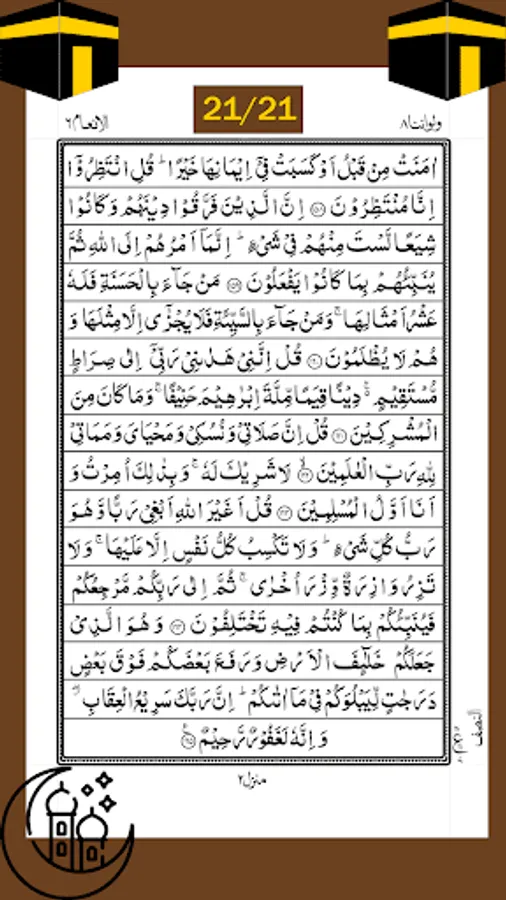 21/21
ولواننا ٨
الانعام ٦
اٰمَنَتْ مِنْ قَبْلُ اَوْ كَسَبَتْ فِیْۤ اِیْمَانِهَا خَیْرًا ؕ قُلِ انْتَظِرُوْۤا
اِنَّا مُنْتَظِرُوْنَ ﴿۱۵۸﴾ اِنَّ الَّذِیْنَ فَرَّقُوْا دِیْنَهُمْ وَ كَانُوْا
شِیَعًا لَّسْتَ مِنْهُمْ فِیْ شَیْءٍ ؕ اِنَّمَاۤ اَمْرُهُمْ اِلَی اللّٰهِ ثُمَّ
یُنَبِّئُهُمْ بِمَا كَانُوْا یَفْعَلُوْنَ ﴿۱۵۹﴾ مَنْ جَآءَ بِالْحَسَنَةِ فَلَهٗ
عَشْرُ اَمْثَالِهَا ۚ وَ مَنْ جَآءَ بِالسَّیِّئَةِ فَلَا یُجْزٰۤی اِلَّا مِثْلَهَا وَ
هُمْ لَا یُظْلَمُوْنَ ﴿۱۶۰﴾ قُلْ اِنَّنِیْ هَدٰىنِیْ رَبِّیْۤ اِلٰی صِرَاطٍ
مُّسْتَقِیْمٍ ۚ۬ دِیْنًا قِیَمًا مِّلَّةَ اِبْرٰهِیْمَ حَنِیْفًا ۚ وَ مَا كَانَ مِنَ
الْمُشْرِكِیْنَ ﴿۱۶۱﴾ قُلْ اِنَّ صَلَاتِیْ وَ نُسُكِیْ وَ مَحْیَایَ وَ مَمَاتِیْ
لِلّٰهِ رَبِّ الْعٰلَمِیْنَ ﴿۱۶۲﴾ۙ لَا شَرِیْكَ لَهٗ ۚ وَ بِذٰلِكَ اُمِرْتُ وَ
اَنَا اَوَّلُ الْمُسْلِمِیْنَ ﴿۱۶۳﴾ قُلْ اَغَیْرَ اللّٰهِ اَبْغِیْ رَبًّا وَّ هُوَ
رَبُّ كُلِّ شَیْءٍ ؕ وَ لَا تَكْسِبُ كُلُّ نَفْسٍ اِلَّا عَلَیْهَا ۚ وَ لَا
تَزِرُ وَازِرَةٌ وِّزْرَ اُخْرٰی ۚ ثُمَّ اِلٰی رَبِّكُمْ مَّرْجِعُكُمْ
فَیُنَبِّئُكُمْ بِمَا كُنْتُمْ فِیْهِ تَخْتَلِفُوْنَ ﴿۱۶۴﴾ وَ هُوَ الَّذِیْ
جَعَلَكُمْ خَلٰٓىِٕفَ الْاَرْضِ وَ رَفَعَ بَعْضَكُمْ فَوْقَ بَعْضٍ
دَرَجٰتٍ لِّیَبْلُوَكُمْ فِیْ مَاۤ اٰتٰىكُمْ ؕ اِنَّ رَبَّكَ سَرِیْعُ الْعِقَابِ ۖ
وَ اِنَّهٗ لَغَفُوْرٌ رَّحِیْمٌ ﴿۱۶۵﴾
النصف
منزل ۲